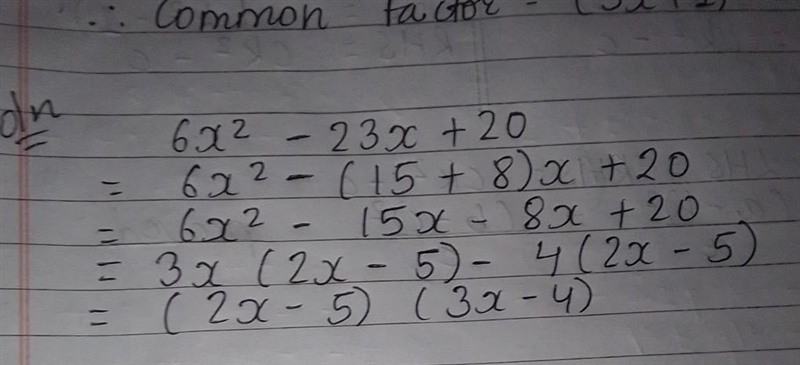 ∴ Common factor = (3x + 2)
6x² - 23x + 20
= 6x² - (15 + 8)x + 20
= 6x² - 15x - 8x + 20
= 3x (2x - 5) - 4 (2x - 5)
= (2x - 5) (3x - 4)